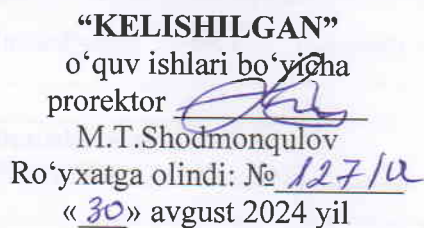 “KELISHILGAN”
o‘quv ishlari bo‘yicha
prorektor
M.T.Shodmonqulov
Ro‘yxatga olindi: № 127/U
« 30 » avgust 2024 yil